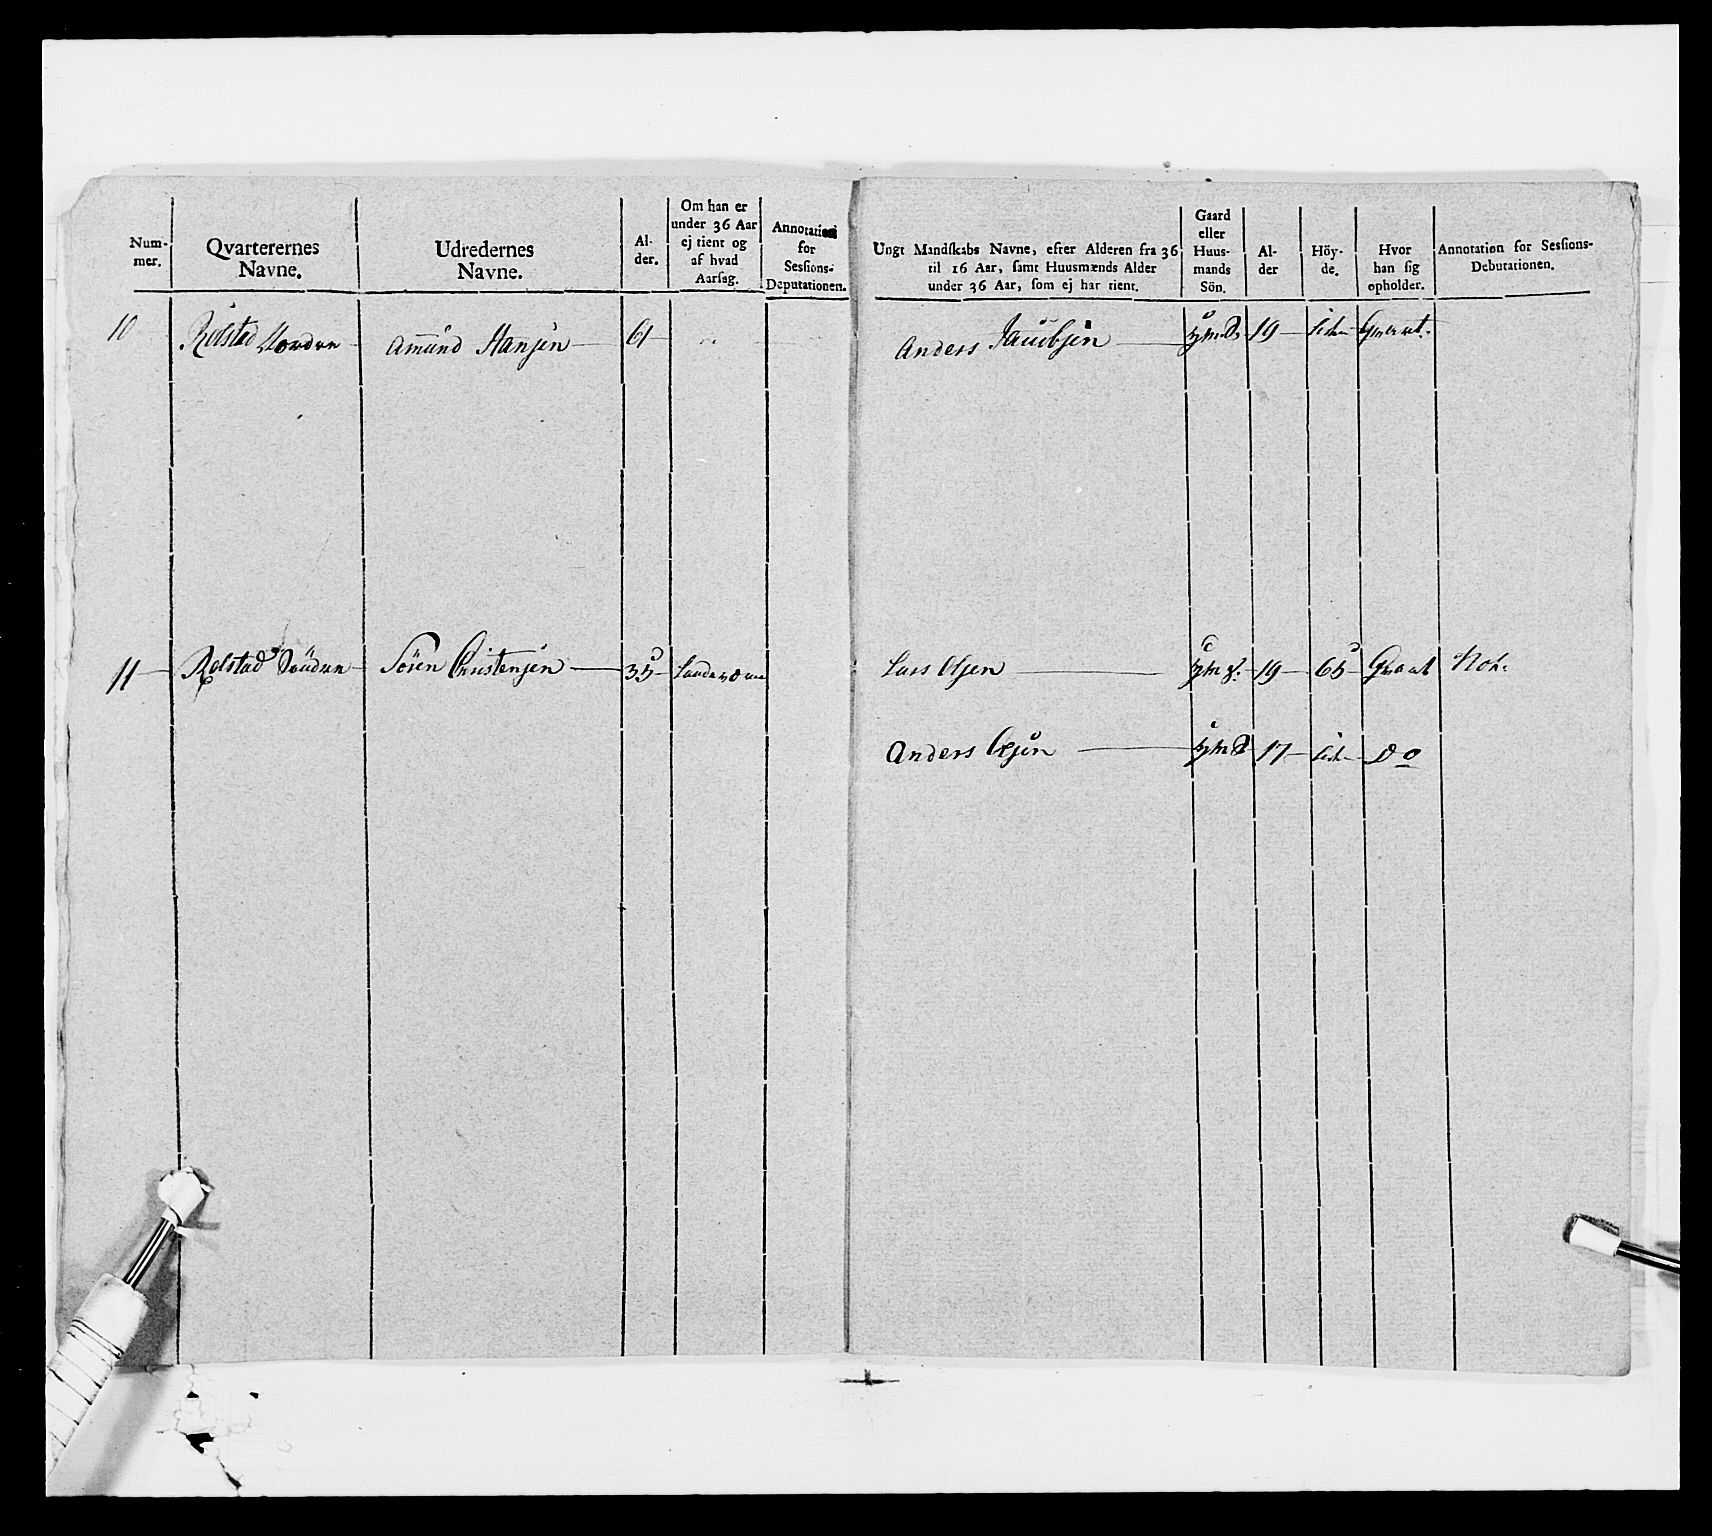 Num-
mer.
Qvarterernes
Navne.
Udredernes
Navne.
Al-
der.
Om han er
under 36 Aar
ej tient og
af hvad
Aarsag.
Annotation
for
Sessions-
Deputationen.
Ungt Mandskabs Navne, efter Alderen fra 36
til 16 Aar, samt Huusmænds Alder
under 36 Aar, som ej har tient.
Gaard
eller
Huus-
mands
Sön.
Al-
der
Höy-
de.
Hvor
han sig
opholder.
Annotation for Sessions-
Debutationen.
10 Rolstad Nordre Amund Hansen 61 Anders Jacobsen 19
11 Rolstad Söndre Sören Christensen 35 Lars Olsen 19 65
Anders Olsen 17 Do